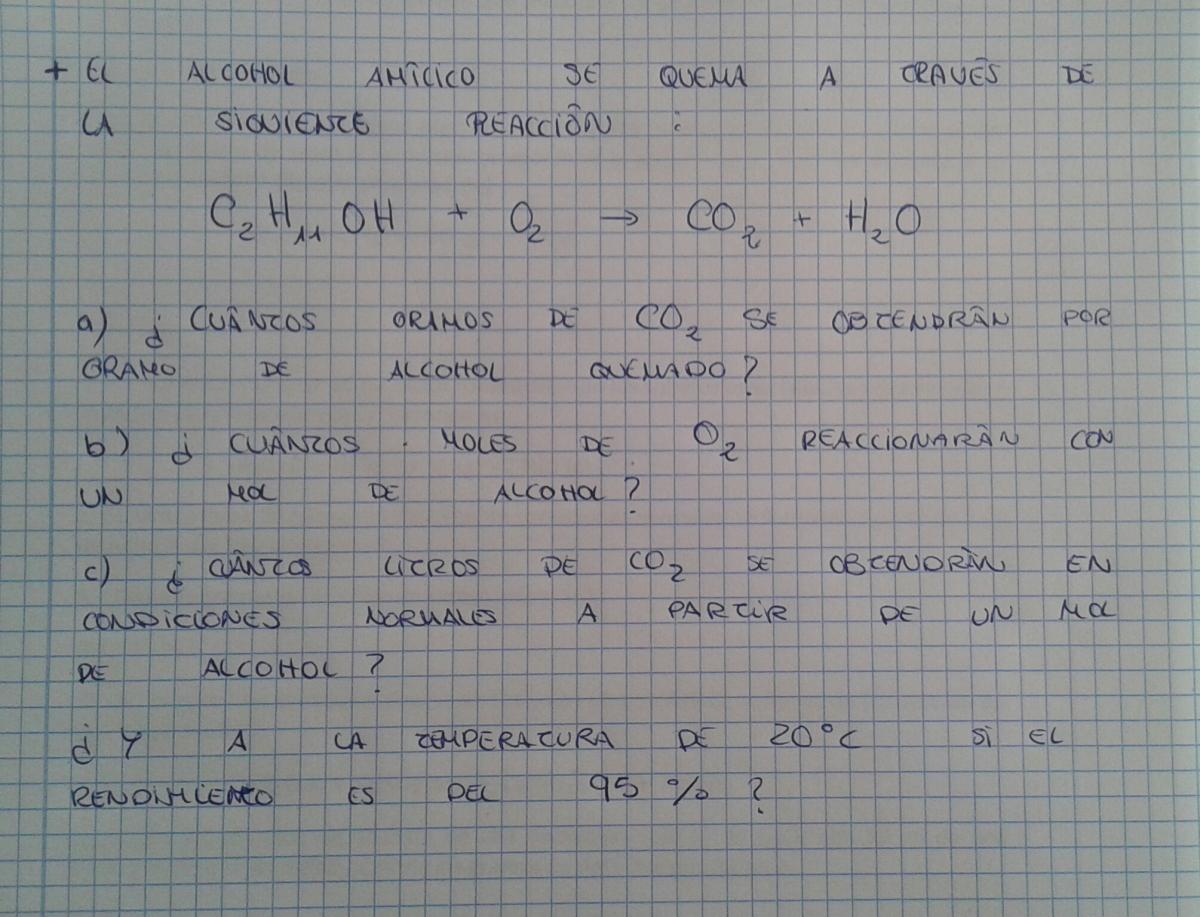 + EL ALCOHOL AMÍLICO SE QUEMA A TRAVÉS DE
LA SIGUIENTE REACCIÓN :
C₂H₁₁OH + O₂ → CO₂ + H₂O
a) ¿ CUÁNTOS GRAMOS DE CO₂ SE OBTENDRÁN POR
GRAMO DE ALCOHOL QUEMADO ?
b) ¿ CUÁNTOS MOLES DE O₂ REACCIONARÁN CON
UN MOL DE ALCOHOL ?
c) ¿ CUÁNTOS LITROS DE CO₂ SE OBTENDRÁN EN
CONDICIONES NORMALES A PARTIR DE UN MOL
DE ALCOHOL ?
¿ Y A LA TEMPERATURA DE 20°C SI EL
RENDIMIENTO ES DEL 95 % ?